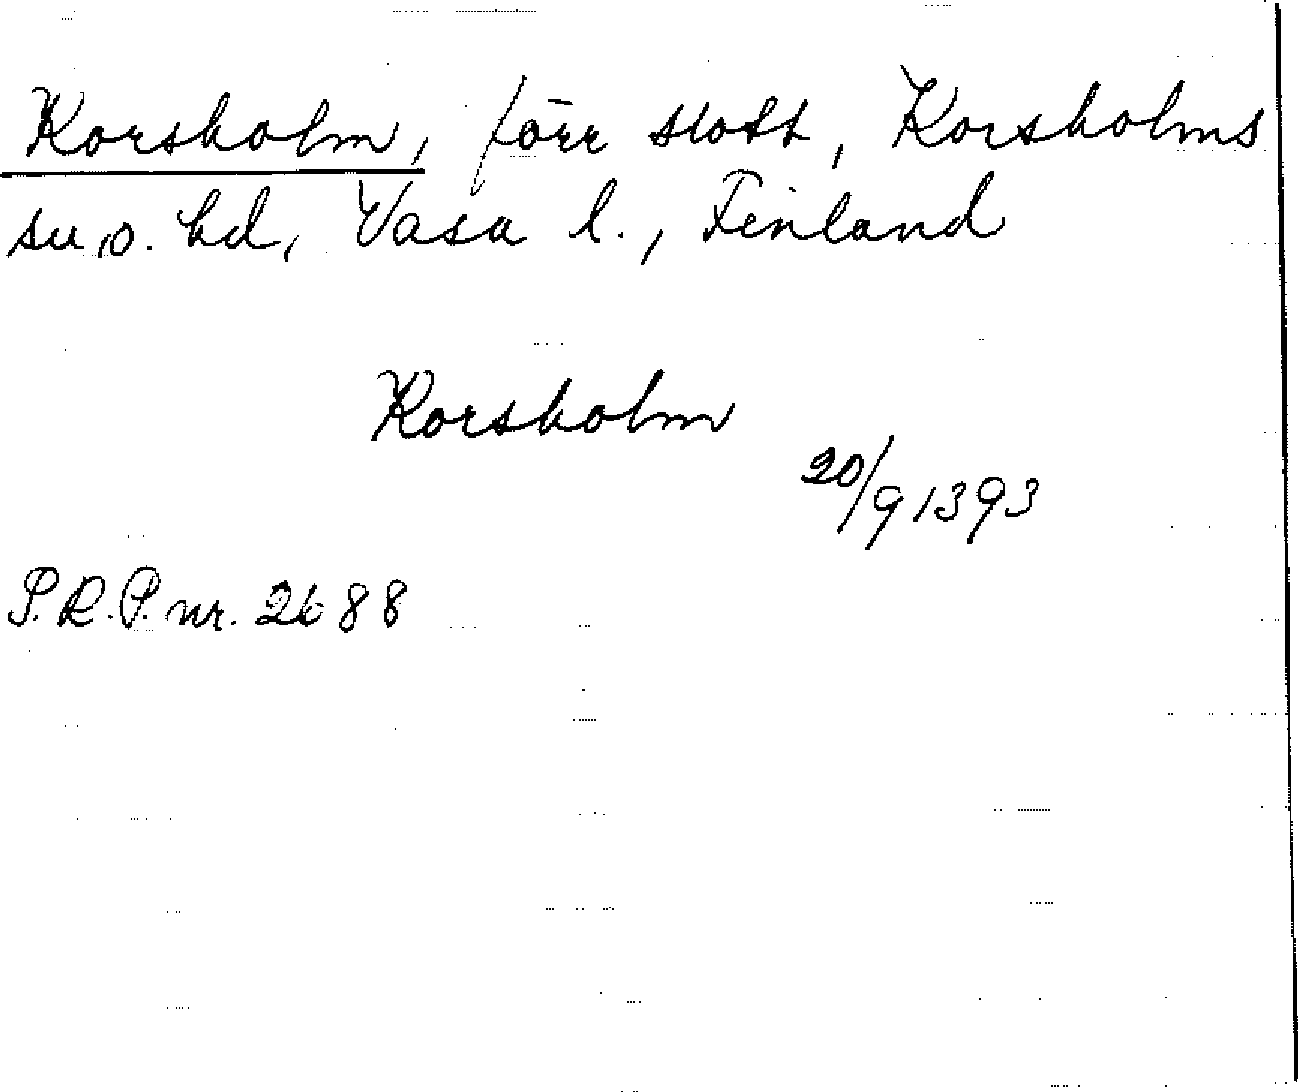 Korsholm, förr slott, Korsholms
su, o. hd, Vasa l., Finland
Korsholm
20/9 1393
P.R.P. nr. 2688